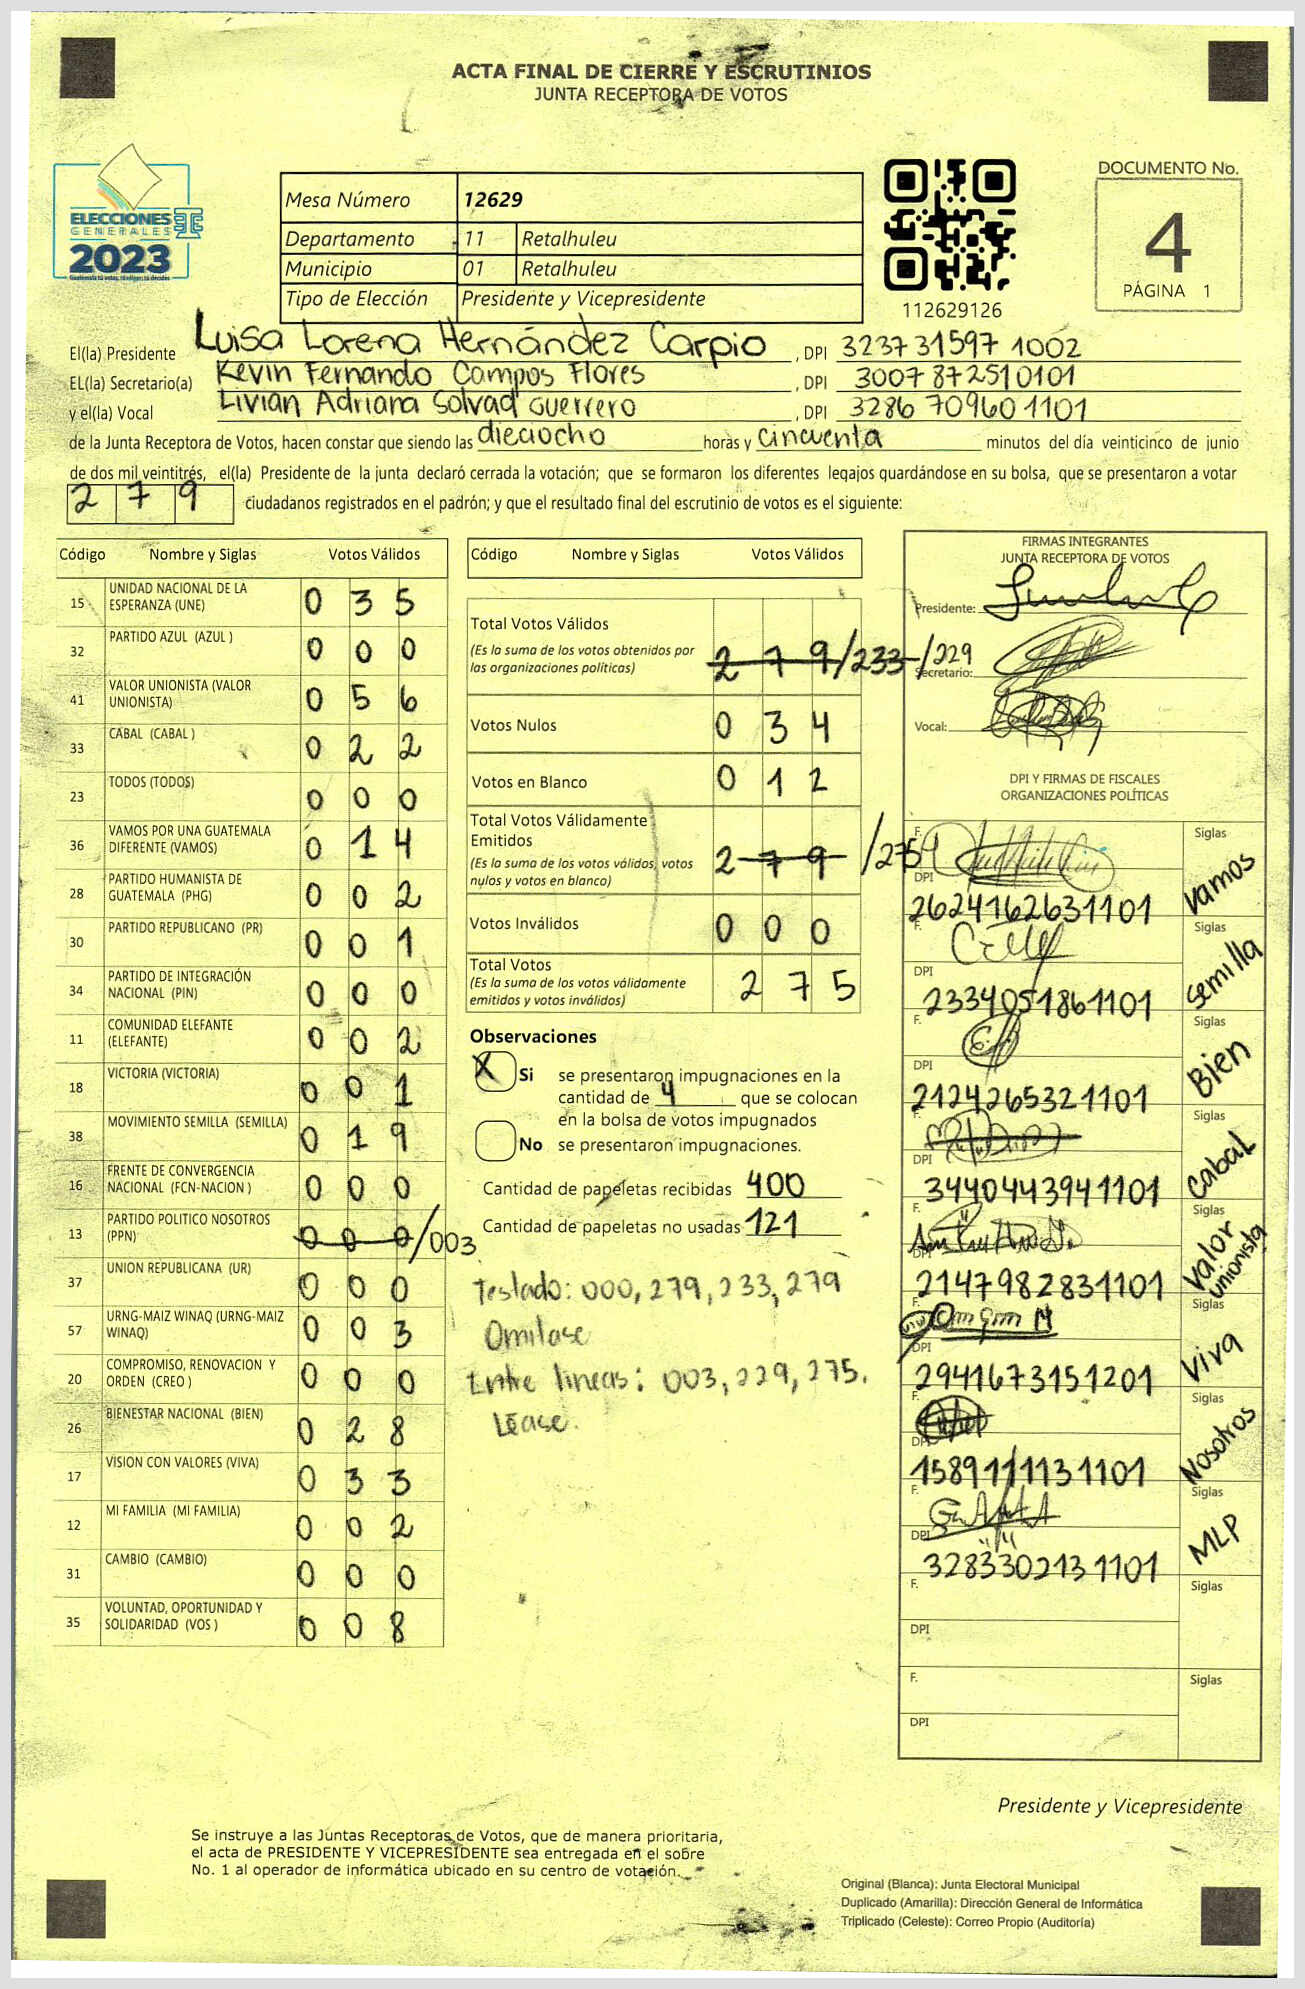 ACTA FINAL DE CIERRE Y ESCRUTINIOS
JUNTA RECEPTORA DE VOTOS
ELECCIONES
GENERALES
2023
Mesa Número 12629
Departamento 11 Retalhuleu
Municipio 01 Retalhuleu
Tipo de Elección Presidente y Vicepresidente
112629126
DOCUMENTO No.
4
PÁGINA 1
El(la) Presidente Luisa Lorena Hernández Carpio , DPI 323731597 1002
EL(la) Secretario(a) Kevin Fernando Campos Flores , DPI 3007 872510101
y el(la) Vocal Livian Adriana Guerrero , DPI 3286 709601101
de la Junta Receptora de Votos, hacen constar que siendo las dieciocho horas y cincuenta minutos del día veinticinco de junio
de dos mil veintitrés, el(la) Presidente de la junta declaró cerrada la votación; que se formaron los diferentes legajos guardándose en su bolsa, que se presentaron a votar
2 7 9 ciudadanos registrados en el padrón; y que el resultado final del escrutinio de votos es el siguiente:
Código Nombre y Siglas Votos Válidos
15 UNIDAD NACIONAL DE LA ESPERANZA (UNE) 0 3 5
32 PARTIDO AZUL (AZUL ) 0 0 0
41 VALOR UNIONISTA (VALOR UNIONISTA) 0 5 6
33 CABAL (CABAL ) 0 2 2
23 TODOS (TODOS) 0 0 0
36 VAMOS POR UNA GUATEMALA DIFERENTE (VAMOS) 0 1 4
28 PARTIDO HUMANISTA DE GUATEMALA (PHG) 0 0 2
30 PARTIDO REPUBLICANO (PR) 0 0 1
34 PARTIDO DE INTEGRACIÓN NACIONAL (PIN) 0 0 0
11 COMUNIDAD ELEFANTE (ELEFANTE) 0 0 2
18 VICTORIA (VICTORIA) 0 0 1
38 MOVIMIENTO SEMILLA (SEMILLA) 0 1 9
16 FRENTE DE CONVERGENCIA NACIONAL (FCN-NACION ) 0 0 0
13 PARTIDO POLITICO NOSOTROS (PPN) 0 0 0/003
37 UNION REPUBLICANA (UR) 0 0 0
57 URNG-MAIZ WINAQ (URNG-MAIZ WINAQ) 0 0 3
20 COMPROMISO, RENOVACION Y ORDEN (CREO ) 0 0 0
26 BIENESTAR NACIONAL (BIEN) 0 2 8
17 VISION CON VALORES (VIVA) 0 3 3
12 MI FAMILIA (MI FAMILIA) 0 0 2
31 CAMBIO (CAMBIO) 0 0 0
35 VOLUNTAD, OPORTUNIDAD Y SOLIDARIDAD (VOS ) 0 0 8
Código Nombre y Siglas Votos Válidos
Total Votos Válidos 2 7 9/233/229
(Es la suma de los votos obtenidos por
las organizaciones políticas)
Votos Nulos 0 3 4
Votos en Blanco 0 1 2
Total Votos Válidamente
Emitidos 2 7 9 /275
(Es la suma de los votos válidos, votos
nulos y votos en blanco)
Votos Inválidos 0 0 0
Total Votos 2 7 5
(Es la suma de los votos válidamente
emitidos y votos inválidos)
Observaciones
X Si se presentaron impugnaciones en la
cantidad de 4 que se colocan
en la bolsa de votos impugnados
No se presentaron impugnaciones.
Cantidad de papeletas recibidas 400
Cantidad de papeletas no usadas 121
Testado: 000, 279, 233, 279
Omitase
Entre lineas: 003, 229, 275.
Léase.
FIRMAS INTEGRANTES
JUNTA RECEPTORA DE VOTOS
Presidente:
Secretario:
Vocal:
DPI Y FIRMAS DE FISCALES
ORGANIZACIONES POLÍTICAS
F. Siglas
DPI 2624162631101 Vamos
F. Siglas
DPI 2334051861101 Semilla
F. Siglas
DPI 2124265321101 Bien
F. Siglas
DPI 3440443941101 Cabal
F. Siglas
DPI 2147982831101 Valor Unionista
F. Siglas
DPI 2941673151201 Viva
F. Siglas
DPI 1589111131101 Nosotros
F. Siglas
DPI 3283302131101 MLP
F. Siglas
DPI
F. Siglas
DPI
Presidente y Vicepresidente
Se instruye a las Juntas Receptoras de Votos, que de manera prioritaria,
el acta de PRESIDENTE Y VICEPRESIDENTE sea entregada en el sobre
No. 1 al operador de informática ubicado en su centro de votación.
Original (Blanca): Junta Electoral Municipal
Duplicado (Amarilla): Dirección General de Informática
Triplicado (Celeste): Correo Propio (Auditoría)